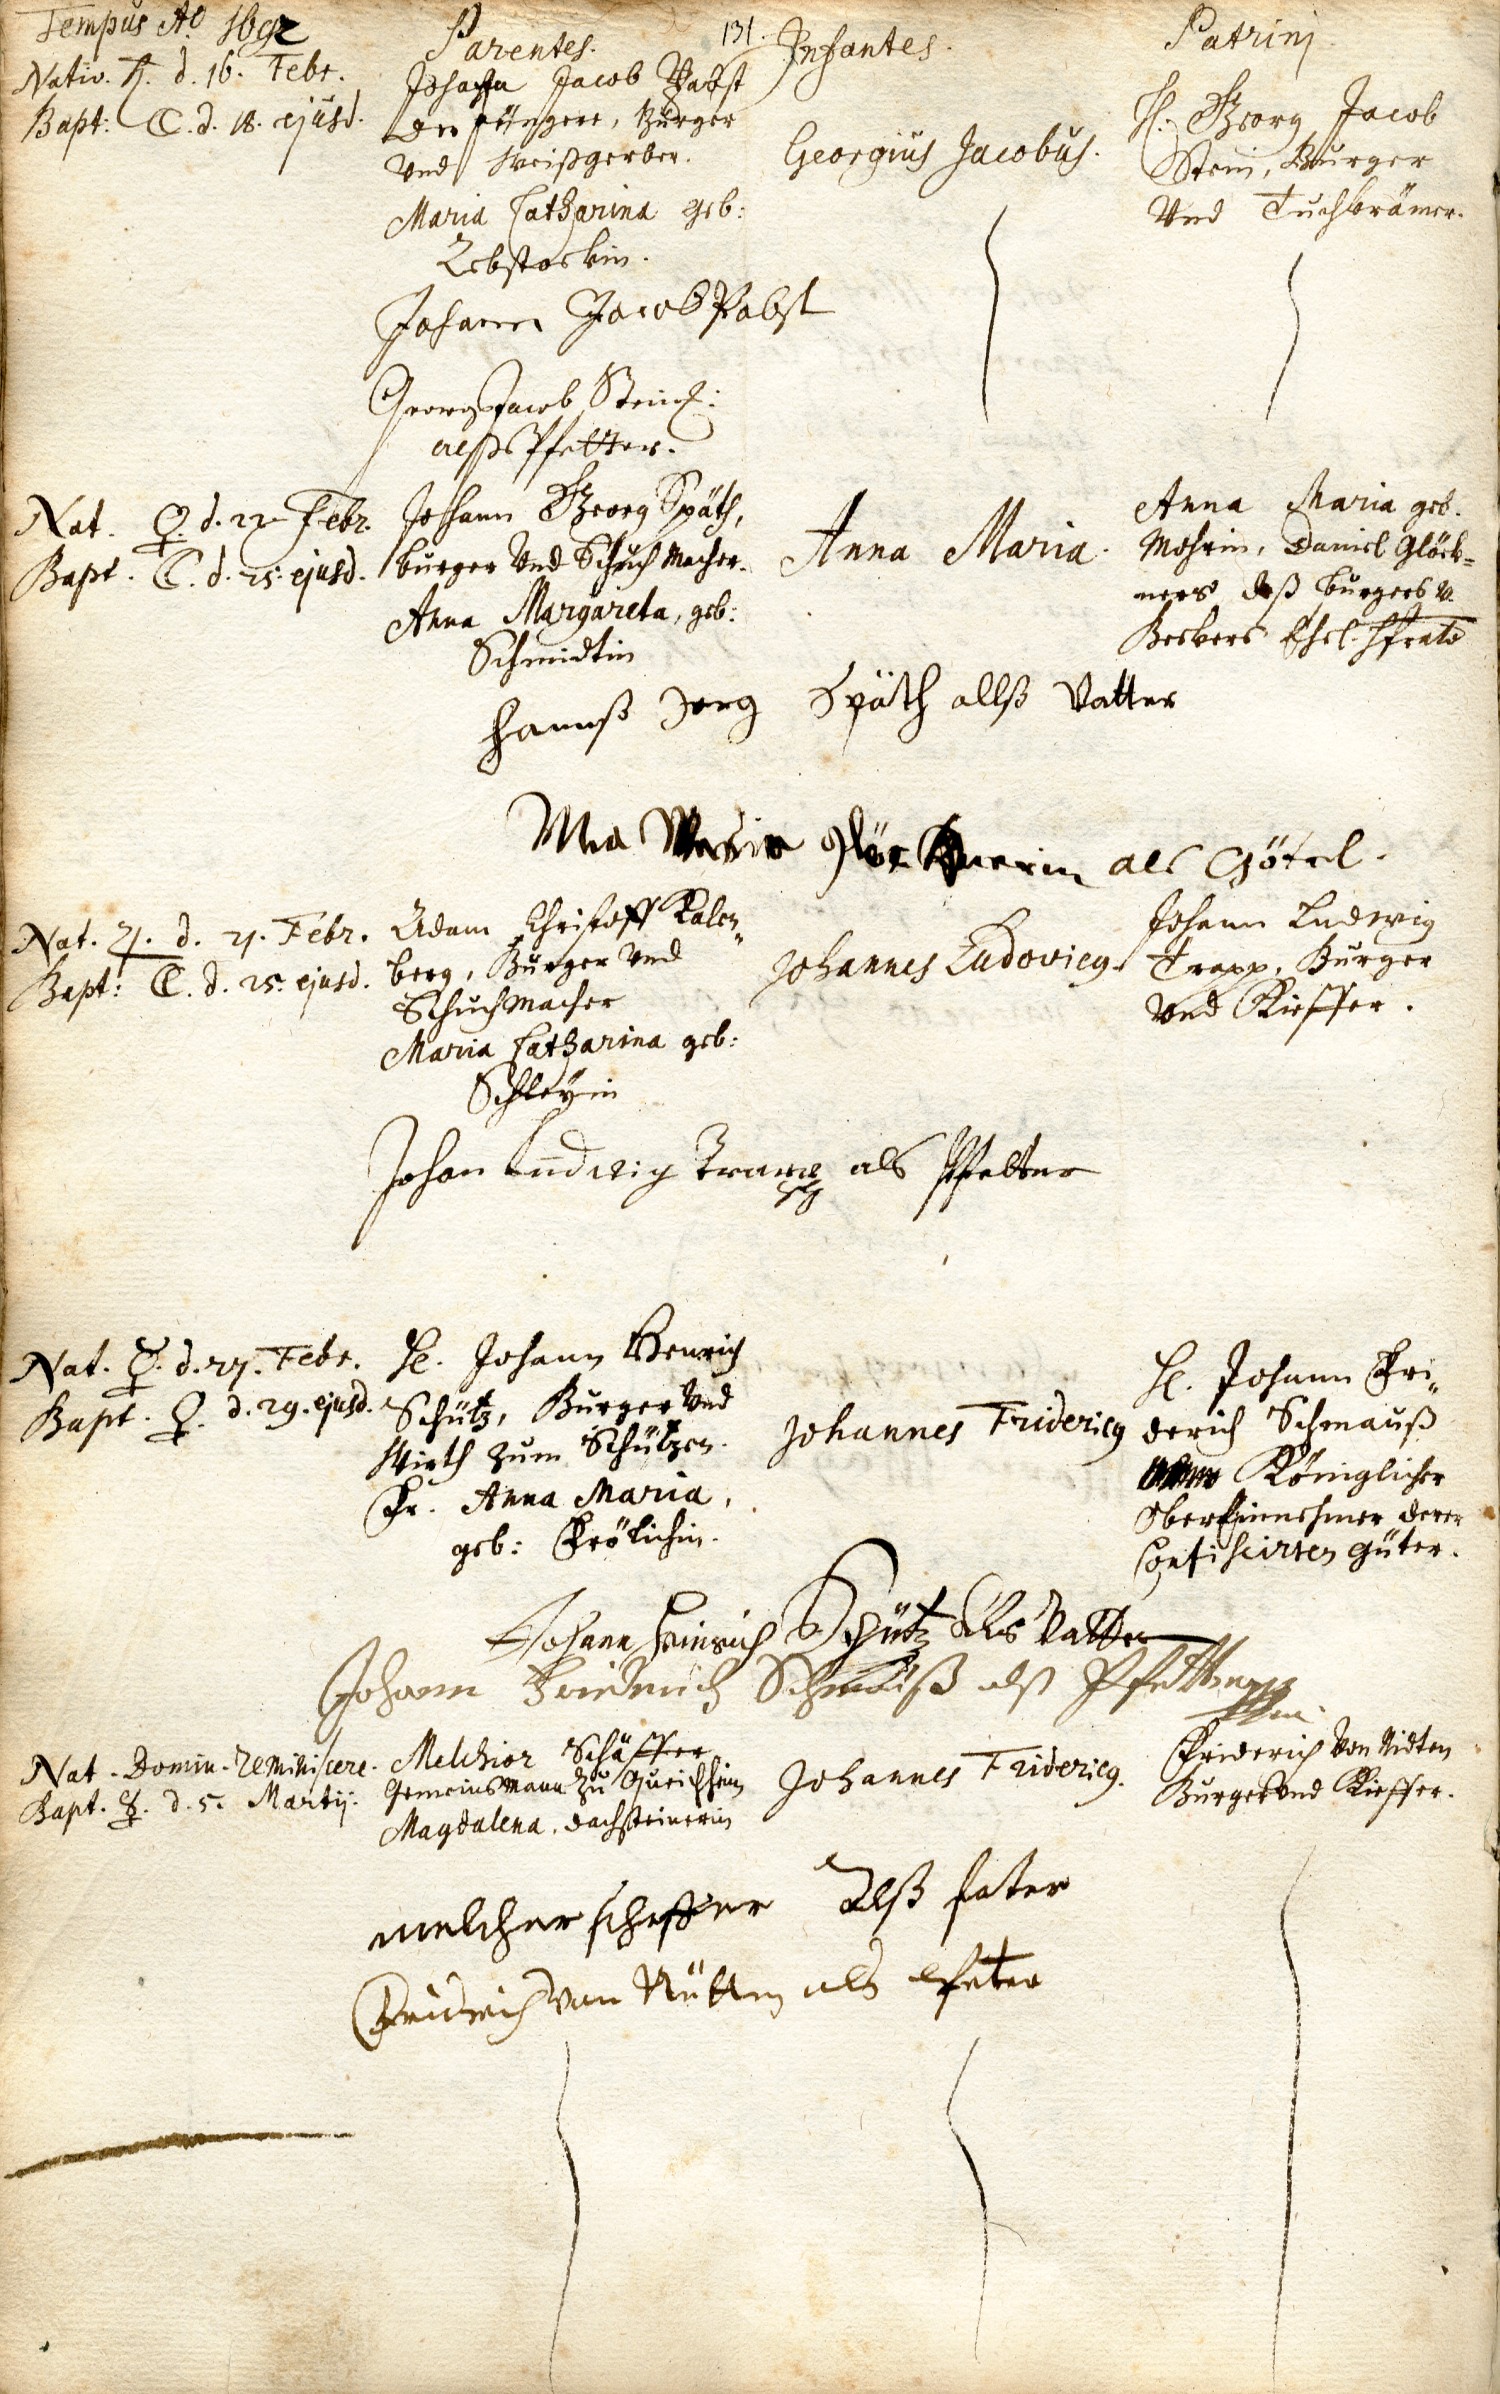 Tempus Ao. 1692
Parentes.
131.
Infantes.
Patrini
Nativ. ♄. d. 16. Febr.
Bapt: ☾. d. 18. ejusd.
Johann Jacob Pabst
der jüngere, Burger
Und Weißgerber.
Maria Catharina geb:
Lebstockin.
Georgius Jacobus.
H. Georg Jacob
Stein, Burger
Und Tuchkrämer.
Johann Jacob Pabst
Georg Jacob Stein
alß Pfetter.
Nat. ♀. d. 22 Febr.
Bapt. ☾. d. 25. ejusd.
Johann Georg Späth,
burger Und Schuchmacher.
Anna Margareta, geb:
Schmidtin
Anna Maria.
Anna Maria geb.
Mohrin, Daniel Glöck=
ners deß burgers v.
Beckers Ehel.
Hannß Jerg Späth allß Vatter
Maria Glöcknerin als Götel.
Nat. ♃. d. 21. Febr.
Bapt: ☾. d. 25. ejusd.
Adam Christoff Kalen„
berg, Burger Und
Schuchmacher
Maria Catharina geb:
Schleÿin
Johannes Ludovicus.
Johann Ludwig
Trapp, Burger
Und Kieffer.
Johan Ludwig Trapp als Pfetter
Nat. ☿. d. 27. Febr.
Bapt. ♀. d. 29. ejusd.
H. Johann Henrich
Schütz, Burger Und
Wirth zum Schützen.
Fr. Anna Maria,
geb: Frölichin.
Johannes Fridericus
H. Johann Fri„
derich Schmauß
Königlicher
OberEinnehmer derer
Confiscirten Güter.
Johann Heinrich Schütz Als Vatter
Johann Friedrich Schmauß alß Pfetter
Nat. Domin. Reminiscere.
Bapt. ☿. d. 5. Martij.
Melchior Schäffer
Gemeinsmann zu Queichheim
Magdalena, Dachsteinerin
Johannes Fridericus.
Friderich Von Nidten
Burger Und Kieffer.
melcher scheffer Alß fater
Fridrich Von Nütten als Pfeter